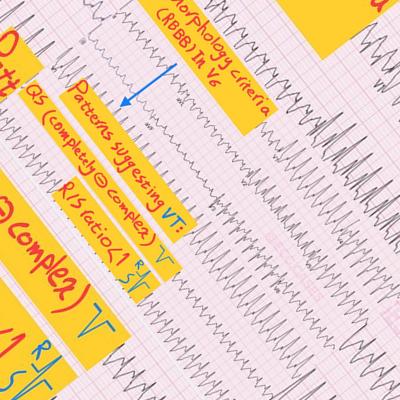 Morphology criteria
(RBBB) In V6
Patterns suggesting VT:
QS (completely ⊖ complex)
R/S ratio<1 R
S
⊖ complex)
R
S